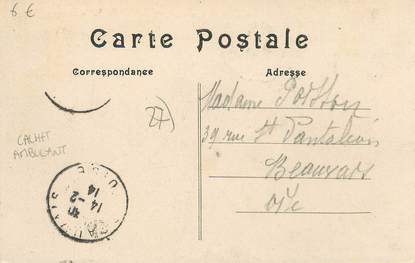 6 €
Carte Postale
Correspondance
Adresse
27)
CACHET
AMBULANT
Madame Poisson
39 rue St Pantaléon
Beauvais
Oise
BEAUVAIS
14 -2
14
OISE